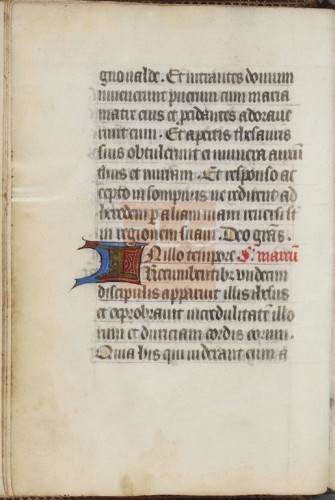 gno valde. Et intrantes domum
invenerunt puerum cum maria
matre eius et procidentes adorave
runt eum. Et apertis thesauris
suis obtulerunt ei munera aurū
thus et mirram. Et responso ac
cepto in sompnis ne redirent ad
herodem p̄ aliam viam reversi sī
in regionem suam. Deo grās.
In illo tempore S. marcū
Recumbentibꝰ undecim
discipulis apparuit illis ihesus
et exprobravit incredulitatē illo
rum et duriciam cordis eorum.
Quia his qui viderant eum a